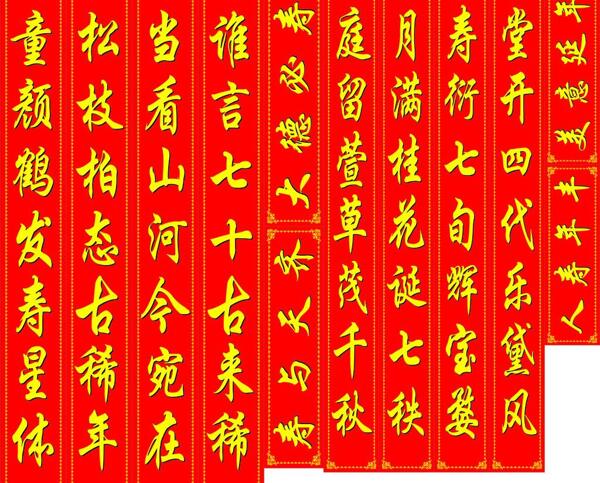 童颜鹤发寿星体
松枝柏态古稀年
当看山河今宛在
谁言七十古来稀
大德必寿
寿与天齐
庭留萱草茂千秋
月满桂花诞七秩
寿衍七旬辉宝婺
堂开四代乐黛风
美意延年
人寿年丰